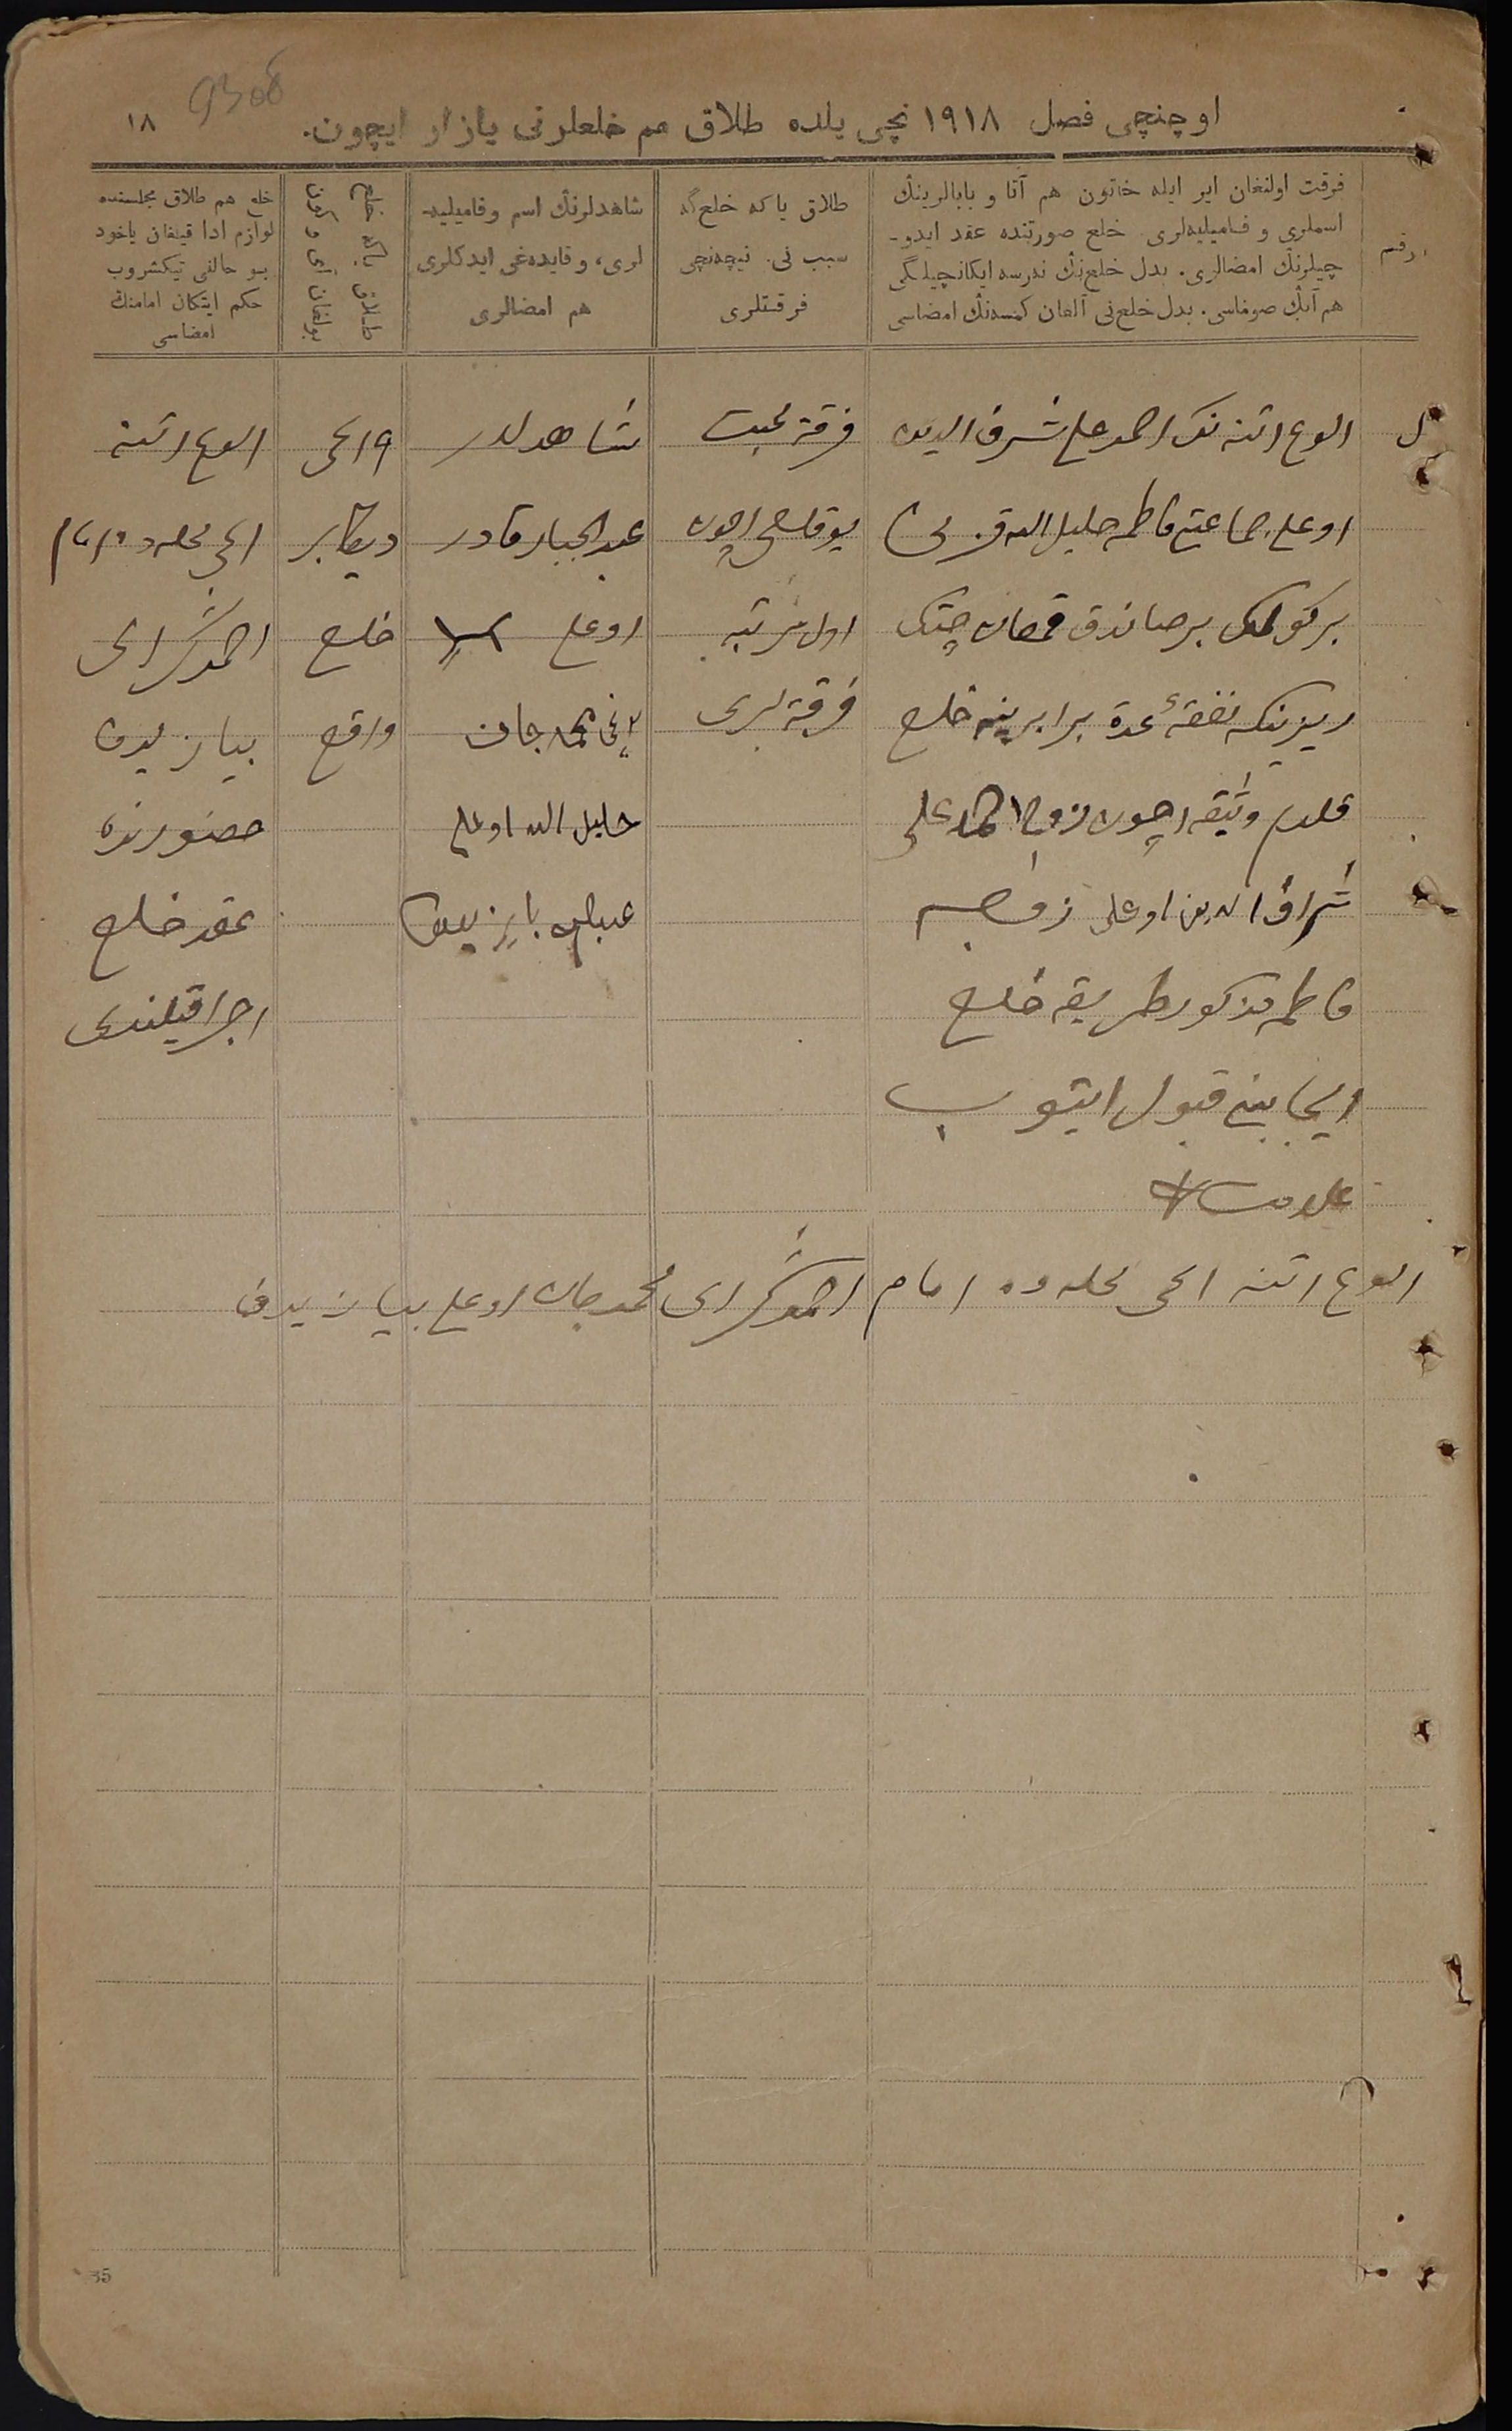 93 об
١٨
اوچنچی فصل ١٩١٨ نچی يلده طلاق هم خلعلرنی يازار ايچون.
رقم
فرقت اولنغان اير ايله خاتون هم آتا و بابالرينڭ
اسملری و فاميليه‌لری. خلع صورتنده عقد ايدو-
چيلرنڭ امضالری. بدل خلع‌نڭ نەرسە ايكانچيلگی
هم آنڭ صوماسی. بدل خلع‌نی آلغان كمسەنڭ امضاسی
طلاق ياكه خلع‌گه
سبب نی. نيچەنچی
فرقتلری
شاهدلرنڭ اسم وفاميليه-
لری، و قايدەغی ايدكلری
هم امضالری
طلاق ياكه خلع
بولغان آی و كون
خلع هم طلاق مجلسنده
لوازم ادا قيلغان ياخود
بو حالنی تيكشروب
حكم ايتكان امامنڭ
امضاسی
الوغ اتنه نڭ احمدعلی شرف الدين
اوغلی جماعتی فاطمه خليل الله قزی
بر كولمك بر صاندق چتك
نفقهٔ عدة برابرينه خلع
قلدم وثيقه اچون زوج احمدعلی
شراف الدين اوغلی زوجه
فاطمه مذكور طريقه خلع
ايجابنی قبول ايتوب
علامت
فرقة محبت
يوقلغی اچون
اول مرتبه
فرقة لری
شاهدلر
عبدالجبار قادر
اوغلی
محمد جان
خليل الله اوغلی
١٩ نچی
ديكابر
خلع
واقع
الوغ اتنه
نچی محله ده امام
احمدگرای
بيازيدف
حضورنده
عقد خلع
اجرا قيلندی
الوغ اتنه نچی محله ده امام احمدگرای محمدجان اوغلی بيازيدف
35